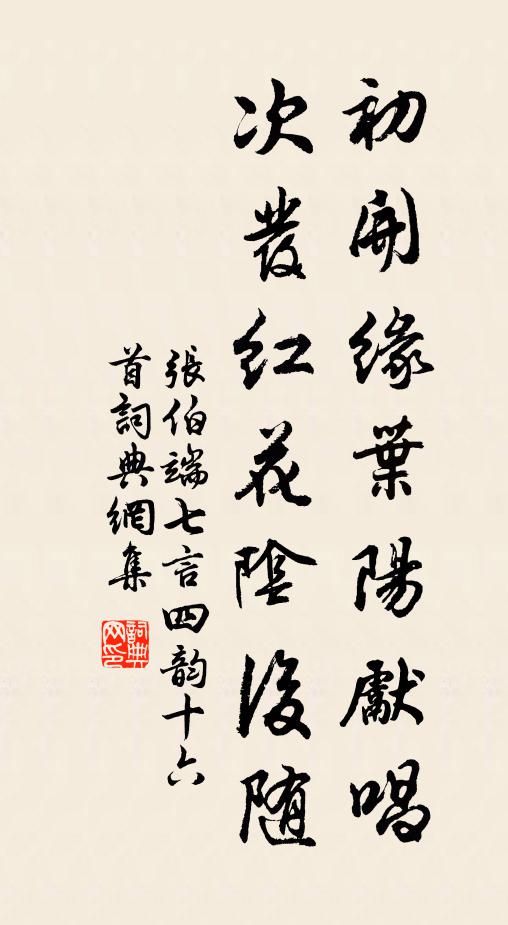 初開緣葉陽獻唱
次發紅花陰後随
張伯端七言四韵十六
首詞典網集
詞典
网印